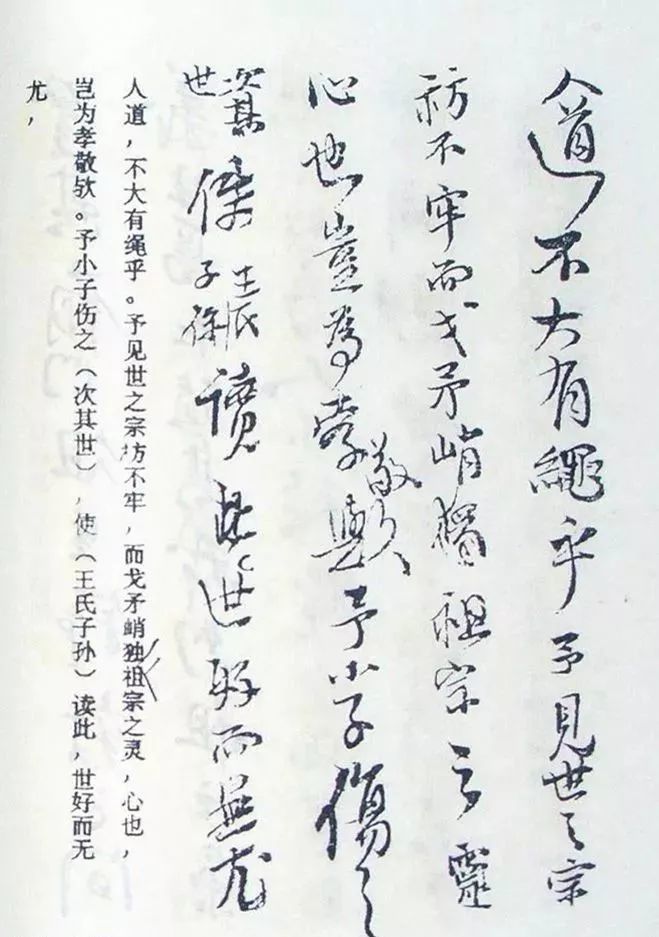 人道不大有繩乎予見世之宗
祊不牢而戈矛峭獨祖宗之靈
心也豈為孝敬歟予小子傷之
次其世使王氏子孫讀此世好而無尤
人道，不大有绳乎。予见世之宗坊不牢，而戈矛峭独祖宗之灵，心也，
岂为孝敬欤。予小子伤之（次其世），使（王氏子孙）读此，世好而无
尤，